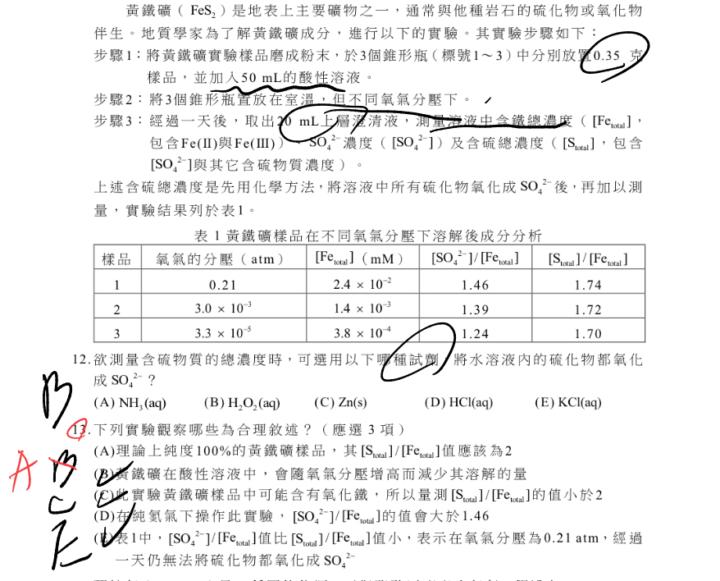 黃鐵礦（FeS₂）是地表上主要礦物之一，通常與他種岩石的硫化物或氧化物
伴生。地質學家為了解黃鐵礦成分，進行以下的實驗。其實驗步驟如下：
步驟1：將黃鐵礦實驗樣品磨成粉末，於3個錐形瓶（標號1～3）中分別放置0.35 克
樣品，並加入50 mL的酸性溶液。
步驟2：將3個錐形瓶置放在室溫，但不同氧氣分壓下。
步驟3：經過一天後，取出20 mL上層澄清液，測量溶液中含鐵總濃度（[Fe_total]，
包含Fe(II)與Fe(III)）、SO₄²⁻濃度（[SO₄²⁻]）及含硫總濃度（[S_total]，包含
[SO₄²⁻]與其它含硫物質濃度）。
上述含硫總濃度是先用化學方法，將溶液中所有硫化物氧化成SO₄²⁻後，再加以測
量，實驗結果列於表1。
表 1 黃鐵礦樣品在不同氧氣分壓下溶解後成分分析
樣品 氧氣的分壓（atm） [Fe_total]（mM） [SO₄²⁻]/[Fe_total] [S_total]/[Fe_total]
1 0.21 2.4 × 10⁻² 1.46 1.74
2 3.0 × 10⁻³ 1.4 × 10⁻³ 1.39 1.72
3 3.3 × 10⁻⁵ 3.8 × 10⁻⁴ 1.24 1.70
12.欲測量含硫物質的總濃度時，可選用以下哪種試劑，將水溶液內的硫化物都氧化
成SO₄²⁻？
B
(A) NH₃(aq) (B) H₂O₂(aq) (C) Zn(s) (D) HCl(aq) (E) KCl(aq)
13.下列實驗觀察哪些為合理敘述？（應選 3 項）
(A)理論上純度100%的黃鐵礦樣品，其[S_total]/[Fe_total]值應該為2
A B
(B)黃鐵礦在酸性溶液中，會隨氧氣分壓增高而減少其溶解的量
C
(C)此實驗黃鐵礦樣品中可能含有氧化鐵，所以量測[S_total]/[Fe_total]的值小於2
(D)在純氮氣下操作此實驗，[SO₄²⁻]/[Fe_total]的值會大於1.46
E
(E)表1中，[SO₄²⁻]/[Fe_total]值比[S_total]/[Fe_total]值小，表示在氧氣分壓為0.21 atm，經過
一天仍無法將硫化物都氧化成SO₄²⁻